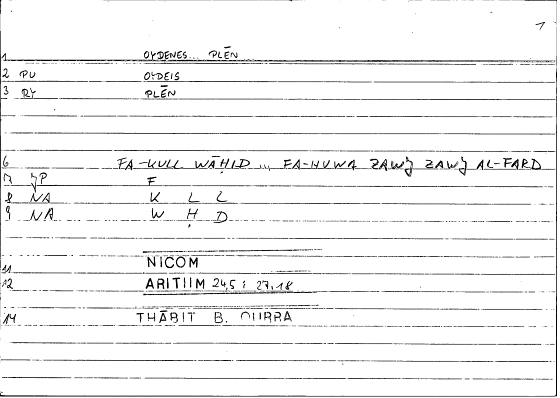 1
1 OYDENES... PLĒN
2 PU OYDEIS
3 RY PLĒN
6 FA-KULL WĀḤID ... FA-HUWA ZAWJ ZAWJ AL-FARD
7 JP F
8 NA K L L
9 NA W Ḥ D
NICOM
11
12 ARITIIM 24,5 ; 27,18
14 THĀBIT B. QURRA